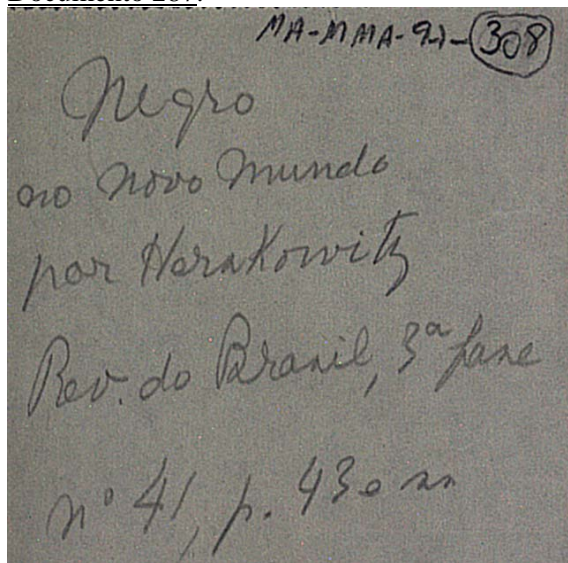 MA-MMA-92-308
Negro
no novo mundo
por Herskowitz
Rev. do Brasil, 3ª fase
nº 41, p. 43 e ss